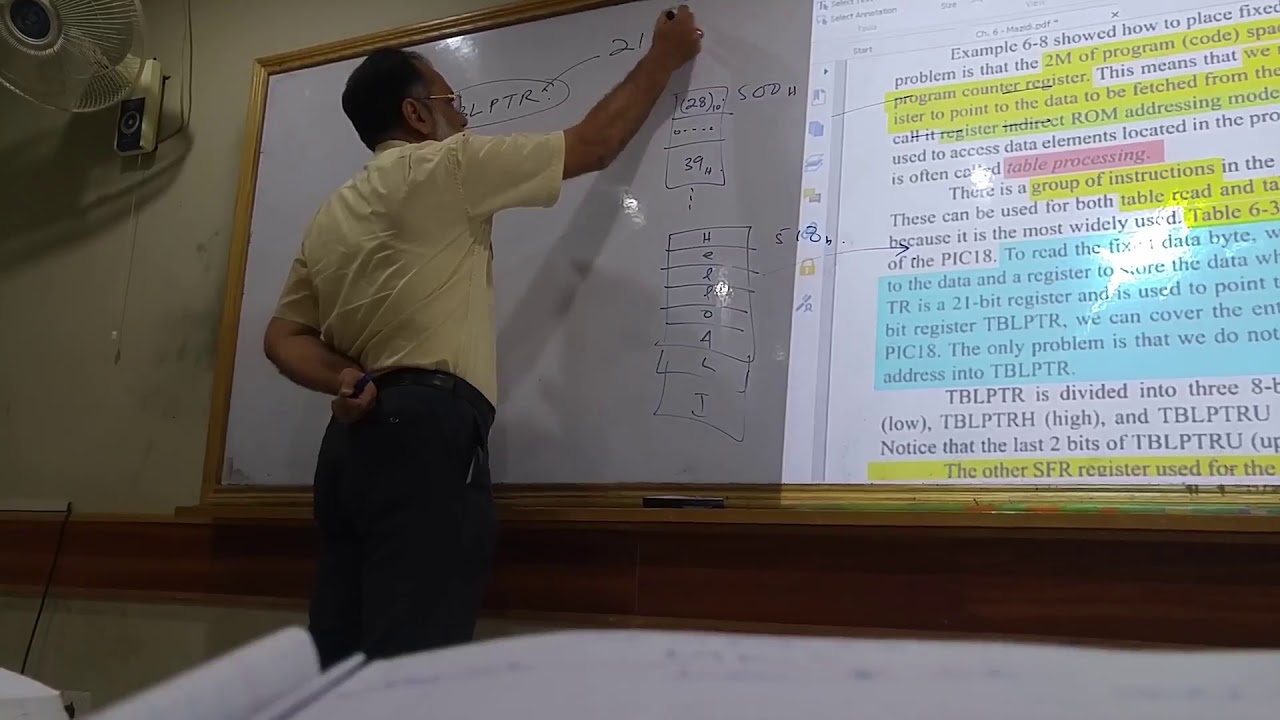 BLPTR
21
500H
(28)10
39H
⋮
518h.
H
e
l
l
o
A
L
I
Select Annotation
Tools
Size
Ch. 6 - Mazidi.pdf *
Start
Example 6-8 showed how to place fixed
problem is that the 2M of program (code) spac
program counter register. This means that we
ister to point to the data to be fetched from the
call it register indirect ROM addressing mode
used to access data elements located in the pro
is often called table processing.
There is a group of instructions in the
These can be used for both table read and ta
because it is the most widely used. Table 6-3
of the PIC18. To read the fixed data byte, w
to the data and a register to store the data wh
TR is a 21-bit register and is used to point t
bit register TBLPTR, we can cover the ent
PIC18. The only problem is that we do not
address into TBLPTR.
TBLPTR is divided into three 8-b
(low), TBLPTRH (high), and TBLPTRU
Notice that the last 2 bits of TBLPTRU (up
The other SFR register used for the